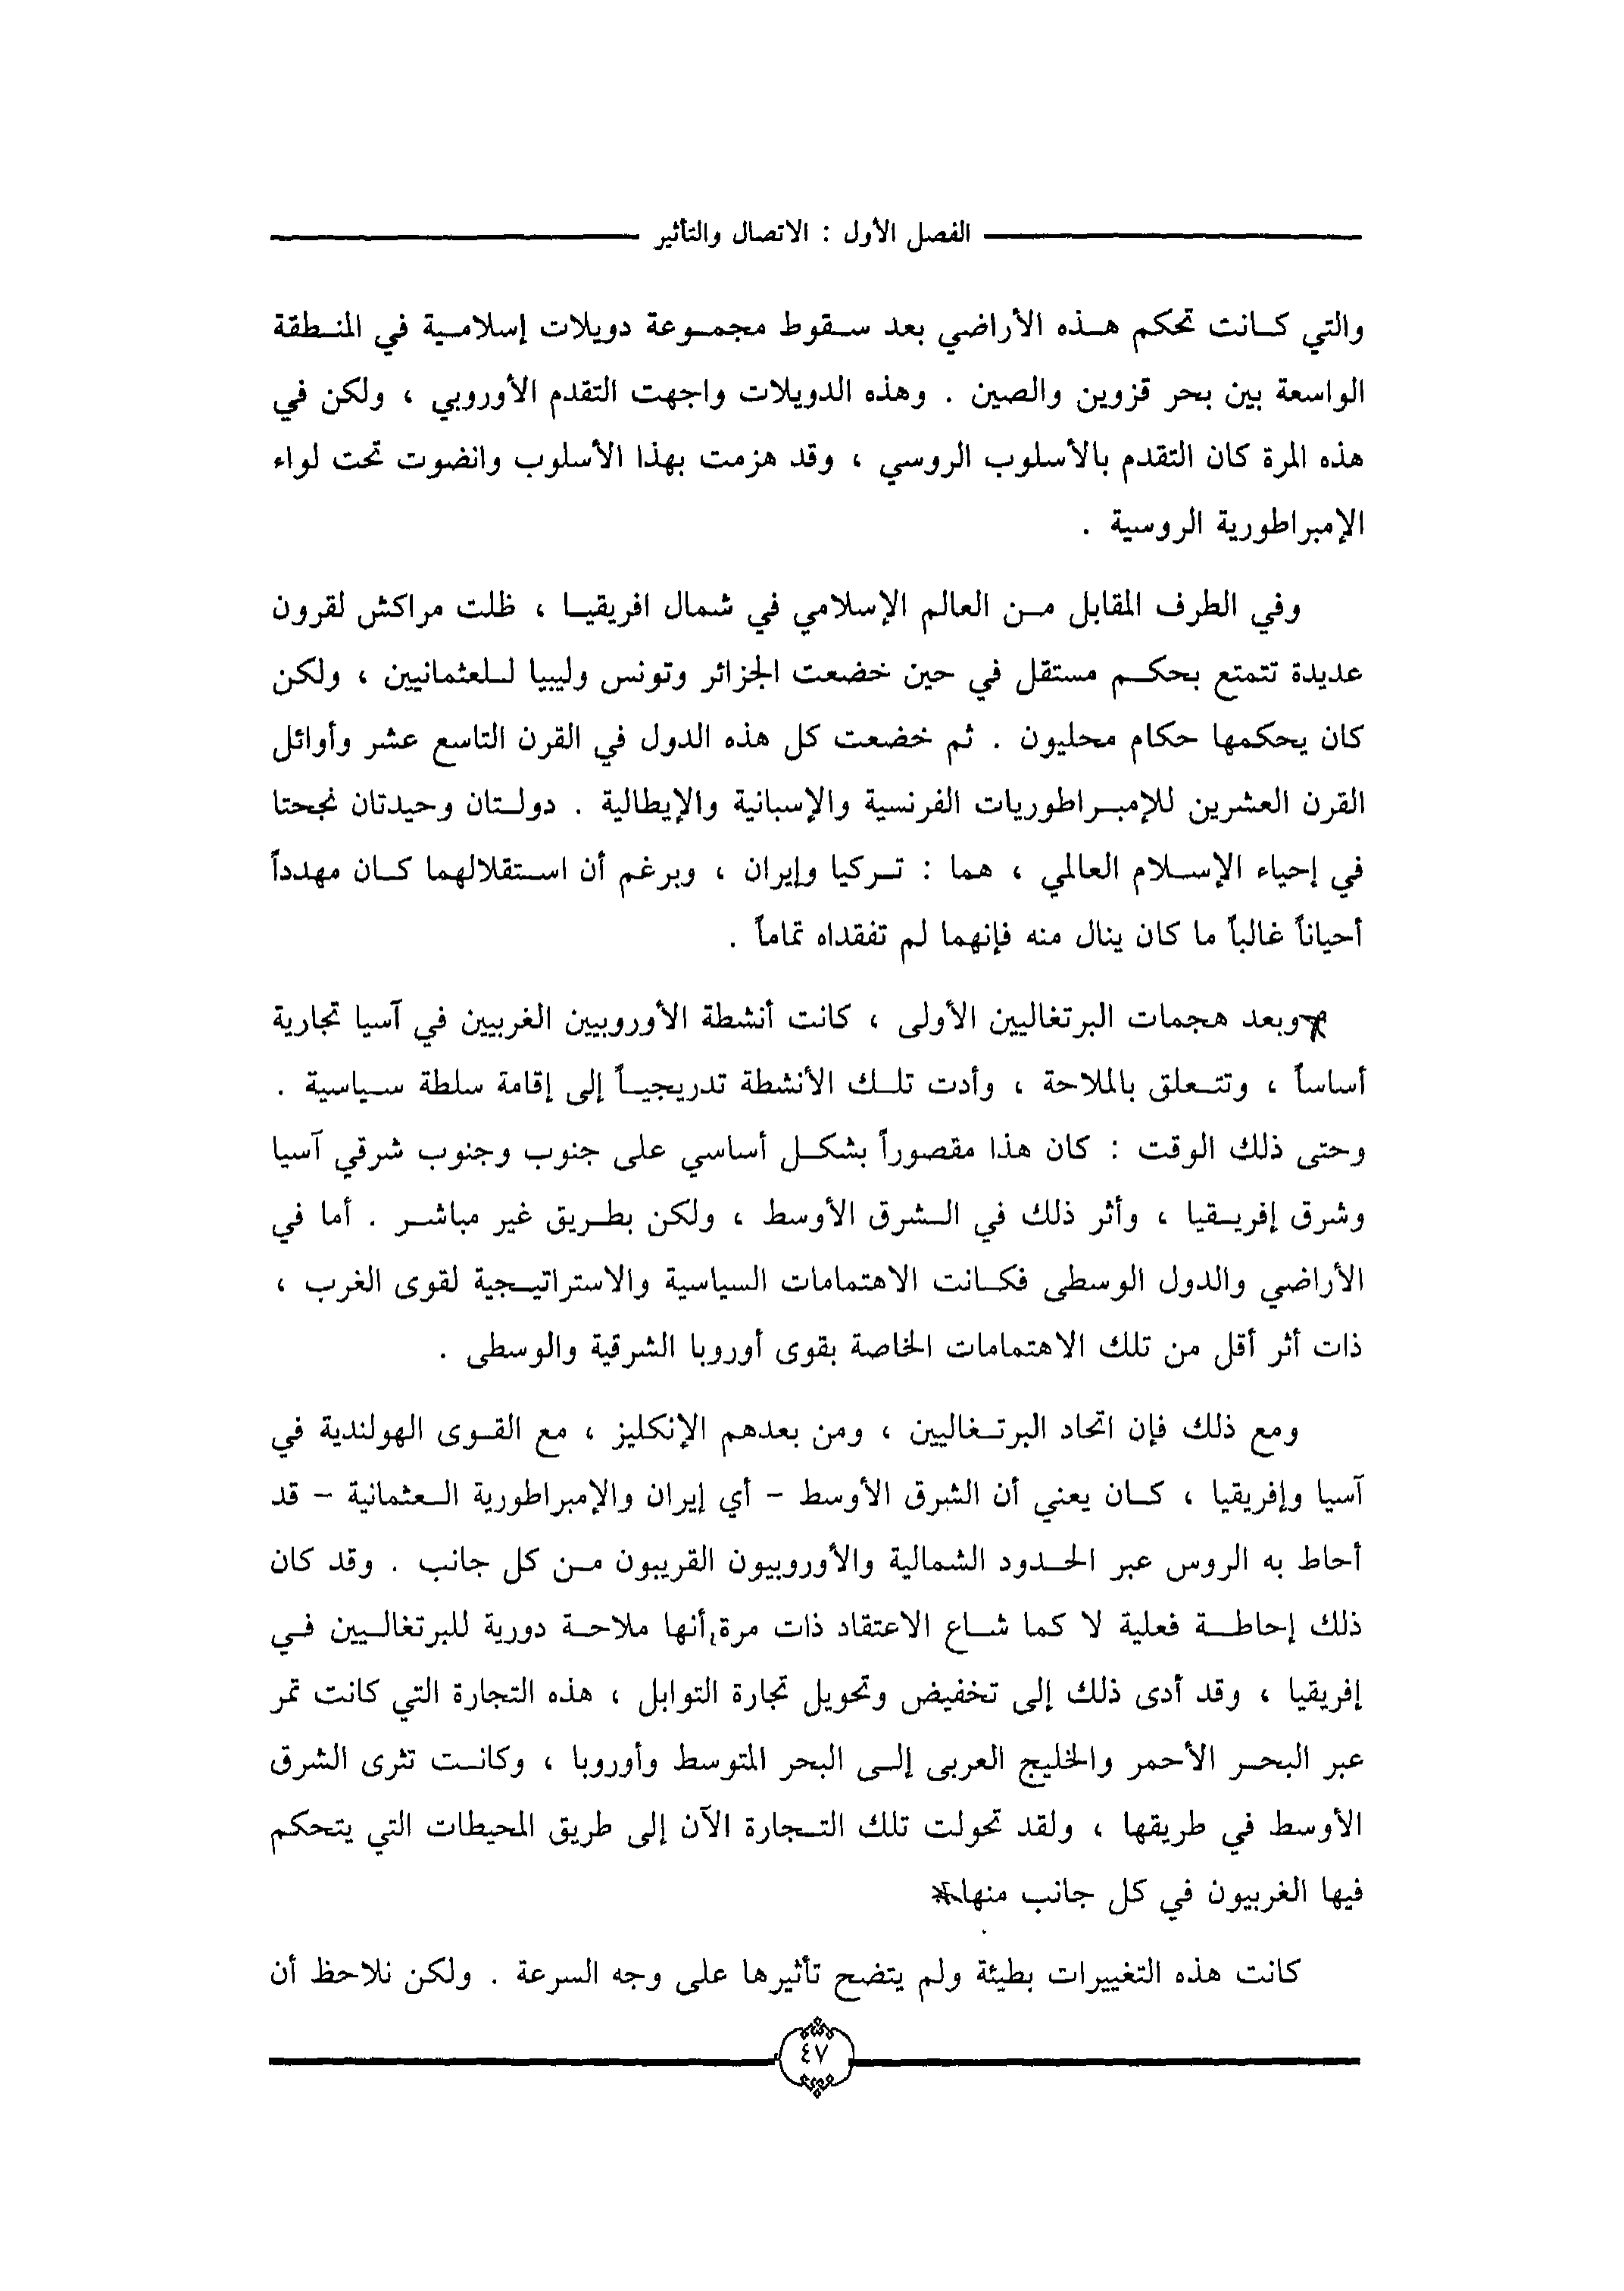 الفصل الأول : الاتصال والتأثير
والتي كانت تحكم هذه الأراضي بعد سقوط مجموعة دويلات إسلامية في المنطقة
الواسعة بين بحر قزوين والصين . وهذه الدويلات واجهت التقدم الأوروبي ، ولكن في
هذه المرة كان التقدم بالأسلوب الروسي ، وقد هزمت بهذا الأسلوب وانضوت تحت لواء
الإمبراطورية الروسية .
وفي الطرف المقابل من العالم الإسلامي في شمال افريقيا ، ظلت مراكش لقرون
عديدة تتمتع بحكم مستقل في حين خضعت الجزائر وتونس وليبيا للعثمانيين ، ولكن
كان يحكمها حكام محليون . ثم خضعت كل هذه الدول في القرن التاسع عشر وأوائل
القرن العشرين للإمبراطوريات الفرنسية والإسبانية والإيطالية . دولتان وحيدتان نجحتا
في إحياء الإسلام العالمي ، هما : تركيا وإيران ، وبرغم أن استقلالهما كان مهدداً
أحياناً غالباً ما كان ينال منه فإنهما لم تفقداه تماماً .
وبعد هجمات البرتغاليين الأولى ، كانت أنشطة الأوروبيين الغربيين في آسيا تجارية
أساساً ، وتتعلق بالملاحة ، وأدت تلك الأنشطة تدريجياً إلى إقامة سلطة سياسية .
وحتى ذلك الوقت : كان هذا مقصوراً بشكل أساسي على جنوب وجنوب شرقي آسيا
وشرق إفريقيا ، وأثر ذلك في الشرق الأوسط ، ولكن بطريق غير مباشر . أما في
الأراضي والدول الوسطى فكانت الاهتمامات السياسية والاستراتيجية لقوى الغرب ،
ذات أثر أقل من تلك الاهتمامات الخاصة بقوى أوروبا الشرقية والوسطى .
ومع ذلك فإن اتحاد البرتغاليين ، ومن بعدهم الإنكليز ، مع القوى الهولندية في
آسيا وإفريقيا ، كان يعني أن الشرق الأوسط - أي إيران والإمبراطورية العثمانية - قد
أحاط به الروس عبر الحدود الشمالية والأوروبيون القريبون من كل جانب . وقد كان
ذلك إحاطة فعلية لا كما شاع الاعتقاد ذات مرة,أنها ملاحة دورية للبرتغاليين في
إفريقيا ، وقد أدى ذلك إلى تخفيض وتحويل تجارة التوابل ، هذه التجارة التي كانت تمر
عبر البحر الأحمر والخليج العربى إلى البحر المتوسط وأوروبا ، وكانت تثرى الشرق
الأوسط في طريقها ، ولقد تحولت تلك التجارة الآن إلى طريق المحيطات التي يتحكم
فيها الغربيون في كل جانب منها
كانت هذه التغييرات بطيئة ولم يتضح تأثيرها على وجه السرعة . ولكن نلاحظ أن
٤٧